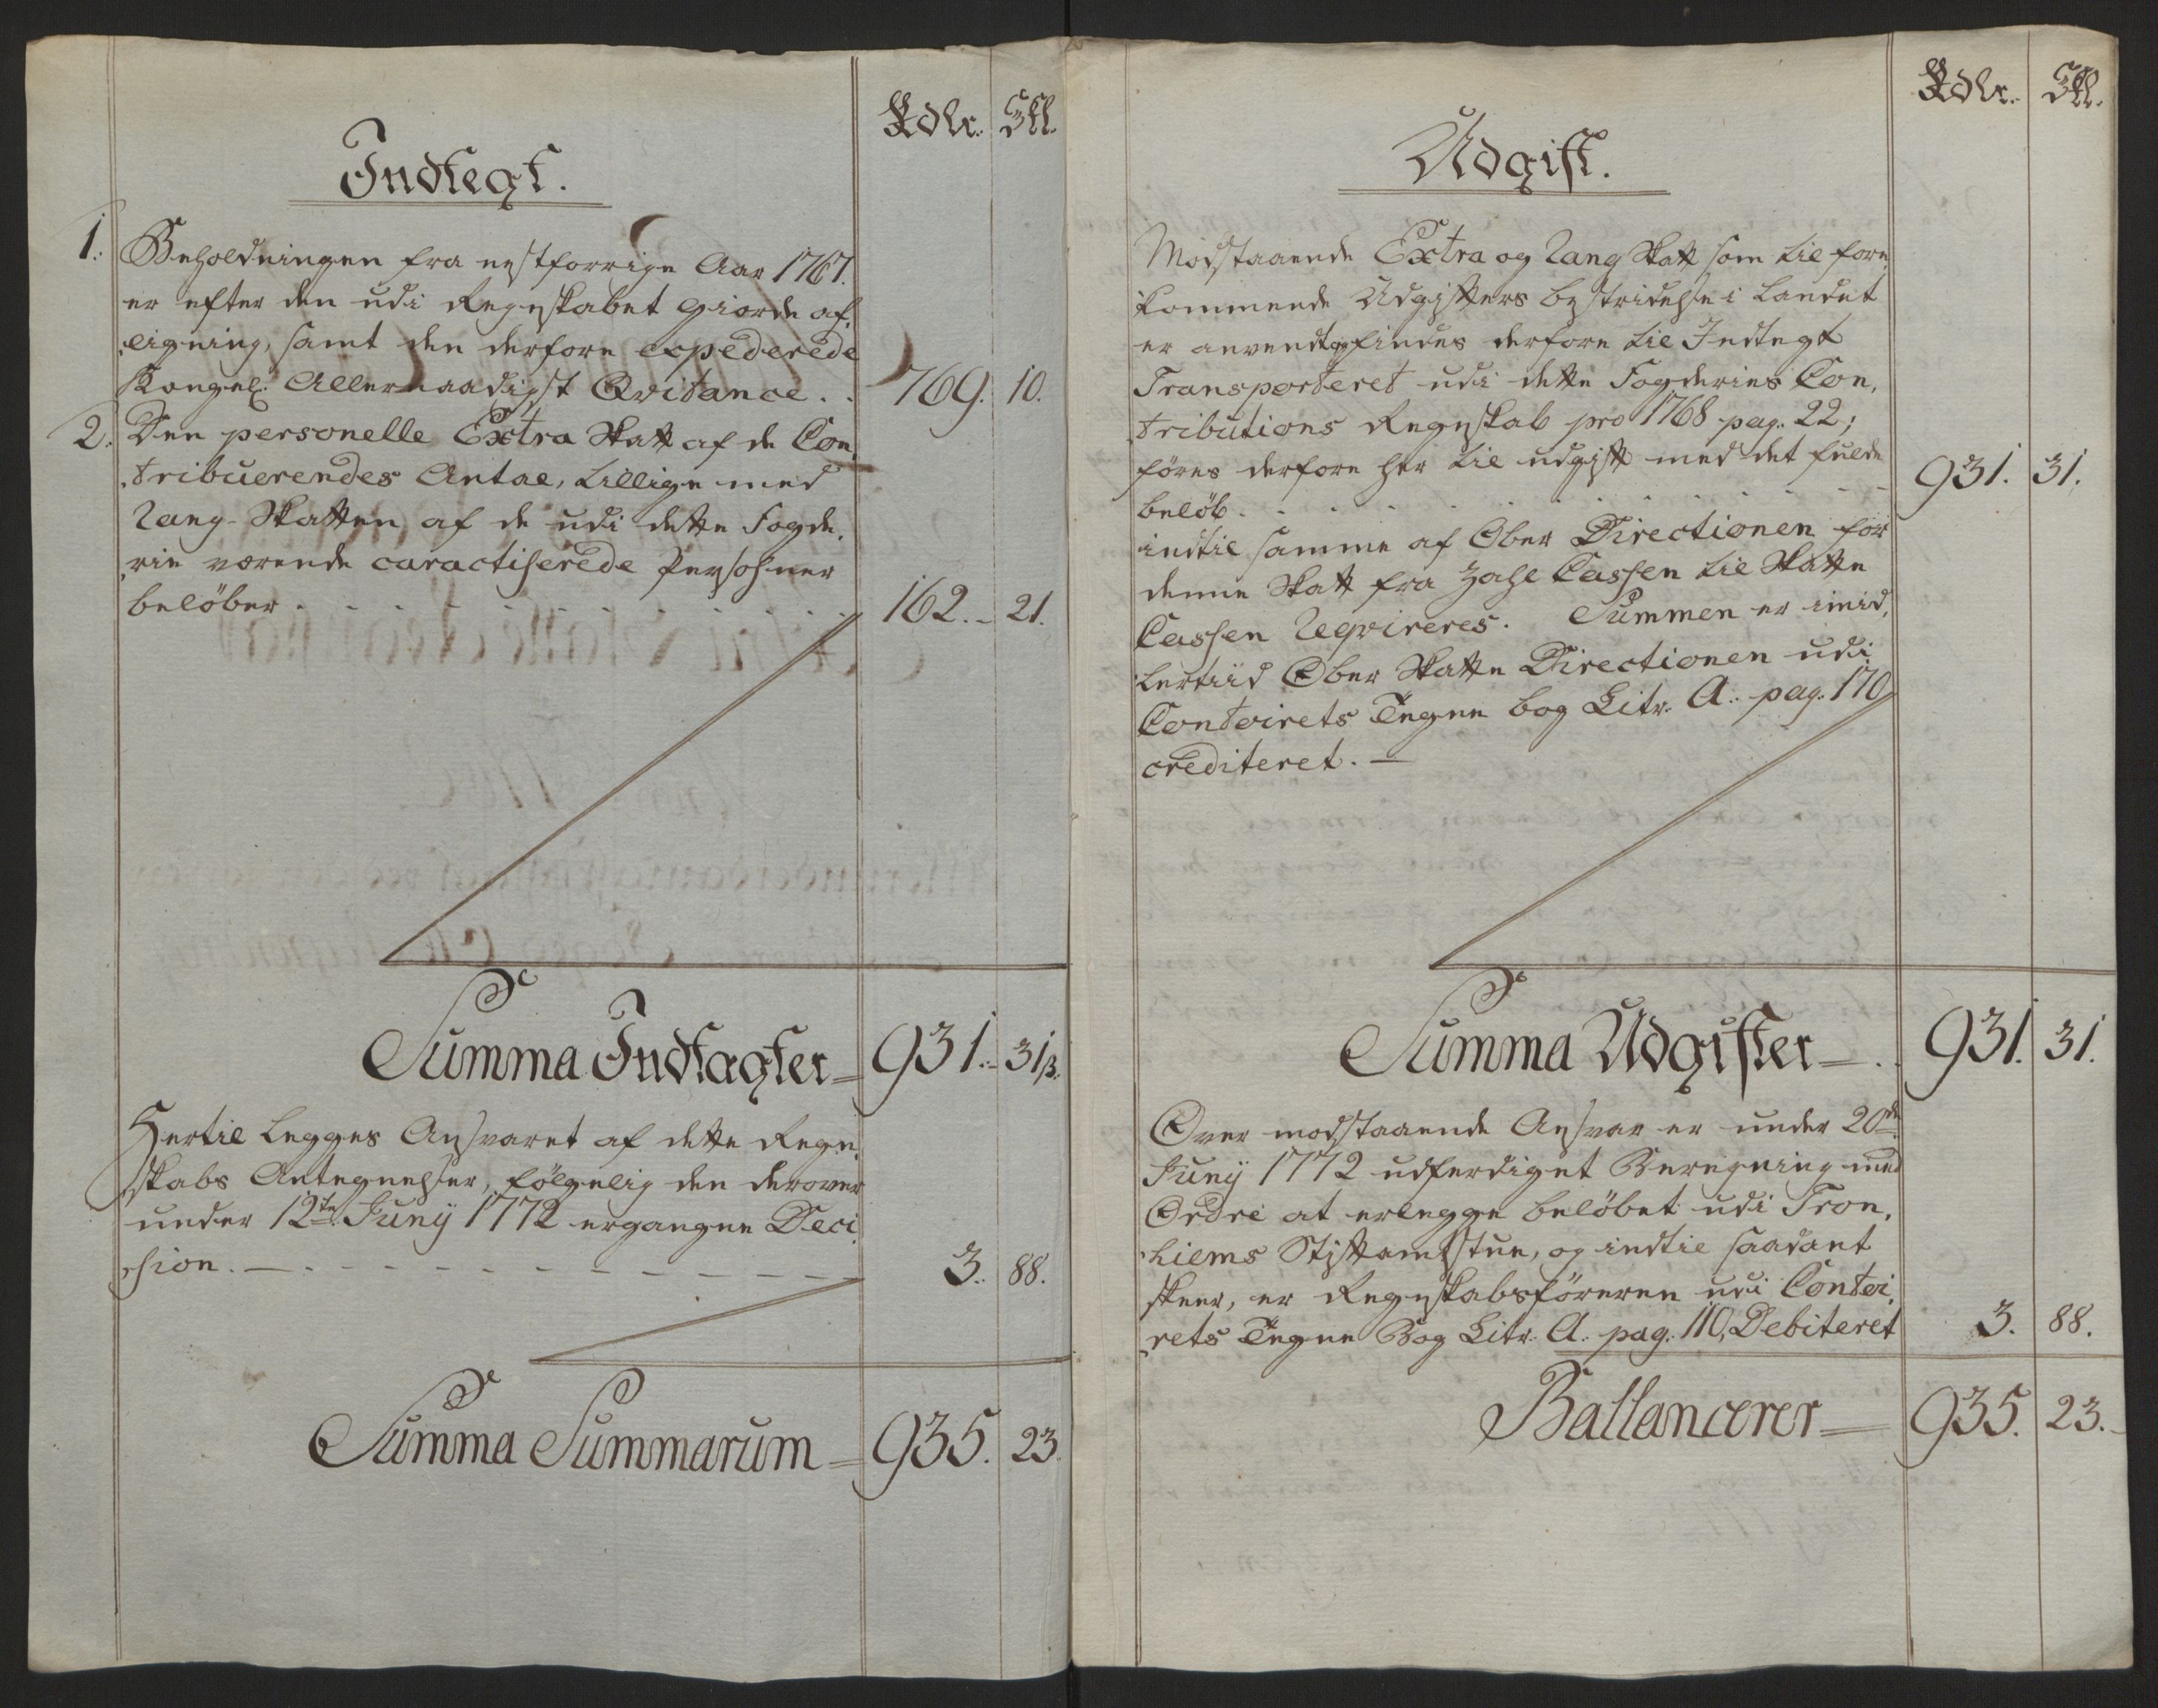 Rdlr. Skl.
Indtegt.
1. Beholdningen fra nestforrige Aar 1767.
er efter den udi Regnskabet giorde af,
,ligning, samt den derfore expederede
Kongel: Allernaadigst Qvitance. . 769. 10.
2. Den personelle Extra Skatt af de Con,
,tribuerendes Antal, tillige med
Rang-Skatten af de udi dette Fogde,
,rie værende caractiserede Persohner
beløber . . . . . . . . . 162.- 21.
Summa Indtægter= 931.- 31ß.
Hertil legges Ansvaret af dette Regn,
,skabs Antegnelser, følgelig den derover
under 12te Junÿ 1772 ergangne Deci,
,sion. — . - - - - - - - 3. 88.
Summa Summarum = 935. 23.
Rdlr. Skl.
Udgift.
Modstaaende Extra og Rang Skatt som til fore,
,kommende Udgifters bestridelse i Landet
er anvendt, findes derfore til Indtegt
Transporteret udi dette Fogderies Con,
,tributions Regnskab pro 1768 pag. 22;
føres derfore her til udgift med det fulde
beløb. . . . . . . . 931. 31.
indtil samme af Ober Directionen for
denne Skatt fra Zahl Cassen til Skatte
Cassen Reqvireres. Summen er imid,
,lertiid Ober Skatte Directionen udi
Contoirets Tegne bog Litr. A. pag. 170
crediteret. —
Summa Udgifter = . 931. 31.
Over modstaaende Ansvar er under 20de
Junÿ 1772 udferdiget Beregning med
Ordre at erlegge beløbet udi Tron,
,hiems Stiftamtstue, og indtil saadant
skeer, er Regnskabsføreren udi Contoi,
,rets Tegne Bog Litr. A. pag. 110, Debiteret 3. 88.
Ballancerer = 935. 23.-